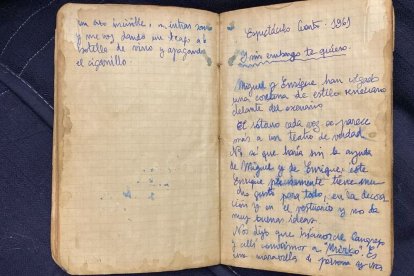 un tipo invisible, mientras
y me voy dando un trago a la
botella de vino y apagando
el cigarrillo
Espectáculo Conto. 1961
Y sin embargo te quiero
Miguel y Enrique han colgado
una cortina de estilo
delante del escenario
El sótano cada vez se parece
más a un teatro de verdad
No sé qué haría sin la ayuda
de Miguel y de Enrique; este
Enrique tiene mu
cho gusto para todo, en la decora
ción y en el vestuario y me da
muy buenas ideas.
Nos dijo que
y allí conocimos a "Mirko". Es
una maravilla de persona y una